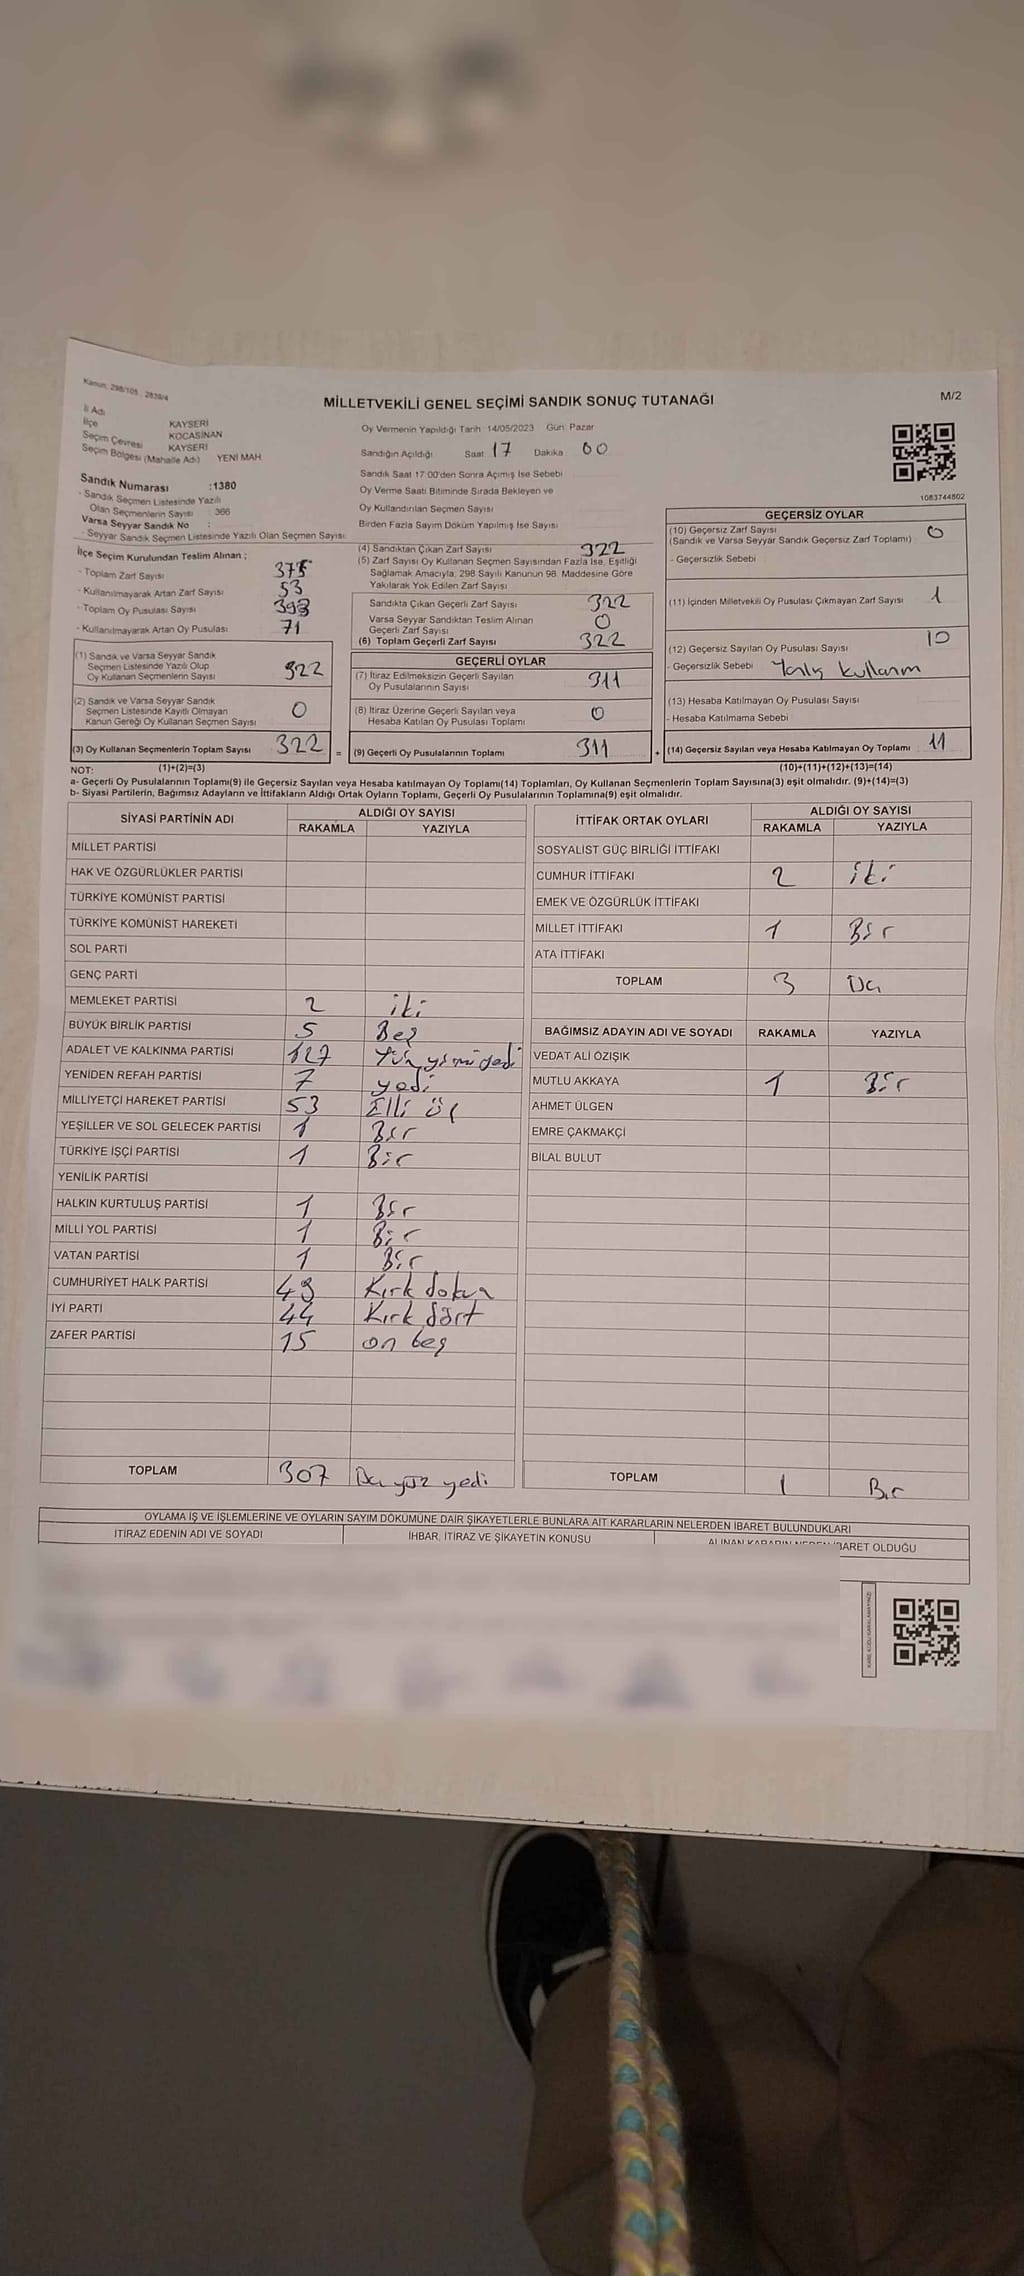 Kanun: 298/105, 2839/4
MİLLETVEKİLİ GENEL SEÇİMİ SANDIK SONUÇ TUTANAĞI
M/2
İl Adı KAYSERİ
İlçe KOCASİNAN
Seçim Çevresi KAYSERİ
Seçim Bölgesi (Mahalle Adı) YENİ MAH.
Sandık Numarası :1380
- Sandık Seçmen Listesinde Yazılı
Olan Seçmenlerin Sayısı : 366
Varsa Seyyar Sandık No :
- Seyyar Sandık Seçmen Listesinde Yazılı Olan Seçmen Sayısı:
Oy Vermenin Yapıldığı Tarih :14/05/2023 Gün: Pazar
Sandığın Açıldığı Saat 17 Dakika 00
Sandık Saat 17:00'den Sonra Açımış İse Sebebi
Oy Verme Saati Bitiminde Sırada Bekleyen ve
Oy Kullandırılan Seçmen Sayısı
Birden Fazla Sayım Döküm Yapılmış İse Sayısı
1083744802
İlçe Seçim Kurulundan Teslim Alınan ;
- Toplam Zarf Sayısı 375
- Kullanılmayarak Artan Zarf Sayısı 53
- Toplam Oy Pusulası Sayısı 393
- Kullanılmayarak Artan Oy Pusulası 71
(1) Sandık ve Varsa Seyyar Sandık
Seçmen Listesinde Yazılı Olup
Oy Kullanan Seçmenlerin Sayısı 322
(2) Sandık ve Varsa Seyyar Sandık
Seçmen Listesinde Kayıtlı Olmayan
Kanun Gereği Oy Kullanan Seçmen Sayısı 0
(3) Oy Kullanan Seçmenlerin Toplam Sayısı 322 =
(4) Sandıktan Çıkan Zarf Sayısı 322
(5) Zarf Sayısı Oy Kullanan Seçmen Sayısından Fazla İse, Eşitliği
Sağlamak Amacıyla, 298 Sayılı Kanunun 98. Maddesine Göre
Yakılarak Yok Edilen Zarf Sayısı
Sandıkta Çıkan Geçerli Zarf Sayısı 322
Varsa Seyyar Sandıktan Teslim Alınan
Geçerli Zarf Sayısı 0
(6) Toplam Geçerli Zarf Sayısı 322
GEÇERLİ OYLAR
(7) İtiraz Edilmeksizin Geçerli Sayılan
Oy Pusulalarının Sayısı 311
(8) İtiraz Üzerine Geçerli Sayılan veya
Hesaba Katılan Oy Pusulası Toplamı 0
(9) Geçerli Oy Pusulalarının Toplamı 311 +
GEÇERSİZ OYLAR
(10) Geçersiz Zarf Sayısı 0
(Sandık ve Varsa Seyyar Sandık Geçersiz Zarf Toplamı)
- Geçersizlik Sebebi
(11) İçinden Milletvekili Oy Pusulası Çıkmayan Zarf Sayısı 1
(12) Geçersiz Sayılan Oy Pusulası Sayısı 10
- Geçersizlik Sebebi Yanlış kullanım
(13) Hesaba Katılmayan Oy Pusulası Sayısı
- Hesaba Katılmama Sebebi
(14) Geçersiz Sayılan veya Hesaba Katılmayan Oy Toplamı 11
NOT: (1)+(2)=(3)
(10)+(11)+(12)+(13)=(14)
a- Geçerli Oy Pusulalarının Toplamı(9) ile Geçersiz Sayılan veya Hesaba katılmayan Oy Toplamı(14) Toplamları, Oy Kullanan Seçmenlerin Toplam Sayısına(3) eşit olmalıdır. (9)+(14)=(3)
b- Siyasi Partilerin, Bağımsız Adayların ve İttifakların Aldığı Ortak Oyların Toplamı, Geçerli Oy Pusulalarının Toplamına(9) eşit olmalıdır.
SİYASİ PARTİNİN ADI ALDIĞI OY SAYISI
RAKAMLA YAZIYLA
MİLLET PARTİSİ
HAK VE ÖZGÜRLÜKLER PARTİSİ
TÜRKİYE KOMÜNİST PARTİSİ
TÜRKİYE KOMÜNİST HAREKETİ
SOL PARTİ
GENÇ PARTİ
MEMLEKET PARTİSİ 2 iki
BÜYÜK BİRLİK PARTİSİ 5 Beş
ADALET VE KALKINMA PARTİSİ 127 Yüz yirmi yedi
YENİDEN REFAH PARTİSİ 7 yedi
MİLLİYETÇİ HAREKET PARTİSİ 53 Elli üç
YEŞİLLER VE SOL GELECEK PARTİSİ 1 Bir
TÜRKİYE İŞÇİ PARTİSİ 1 Bir
YENİLİK PARTİSİ
HALKIN KURTULUŞ PARTİSİ 1 Bir
MİLLİ YOL PARTİSİ 1 Bir
VATAN PARTİSİ 1 Bir
CUMHURİYET HALK PARTİSİ 49 Kırk dokuz
İYİ PARTİ 44 Kırk dört
ZAFER PARTİSİ 15 on beş
TOPLAM 307 Üç yüz yedi
İTTİFAK ORTAK OYLARI ALDIĞI OY SAYISI
RAKAMLA YAZIYLA
SOSYALİST GÜÇ BİRLİĞİ İTTİFAKI
CUMHUR İTTİFAKI 2 iki
EMEK VE ÖZGÜRLÜK İTTİFAKI
MİLLET İTTİFAKI 1 Bir
ATA İTTİFAKI
TOPLAM 3 Üç
BAĞIMSIZ ADAYIN ADI VE SOYADI RAKAMLA YAZIYLA
VEDAT ALİ ÖZIŞIK
MUTLU AKKAYA 1 Bir
AHMET ÜLGEN
EMRE ÇAKMAKÇİ
BİLAL BULUT
TOPLAM 1 Bir
OYLAMA İŞ VE İŞLEMLERİNE VE OYLARIN SAYIM DÖKÜMÜNE DAİR ŞİKAYETLERLE BUNLARA AİT KARARLARIN NELERDEN İBARET BULUNDUKLARI
İTİRAZ EDENİN ADI VE SOYADI İHBAR, İTİRAZ VE ŞİKAYETİN KONUSU ALINAN KARARIN NEDEN İBARET OLDUĞU